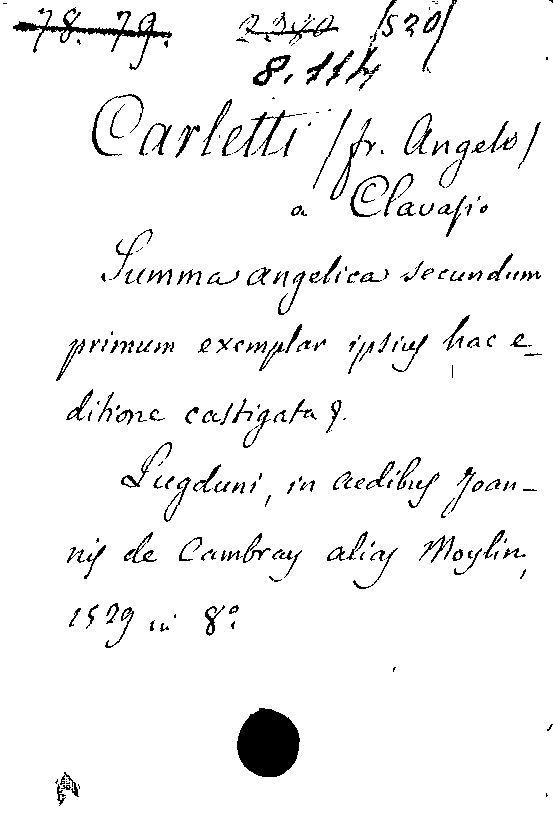 78. 79. 2380 /520/
8.114
Carletti /fr. Angelo/
a Clavasio
Summa angelica secundum
primum exemplar ipsius hac e-
ditione castigata &.
Lugduni, in aedibus Joan-
nis de Cambray alias Moylin,
1529 in 8º